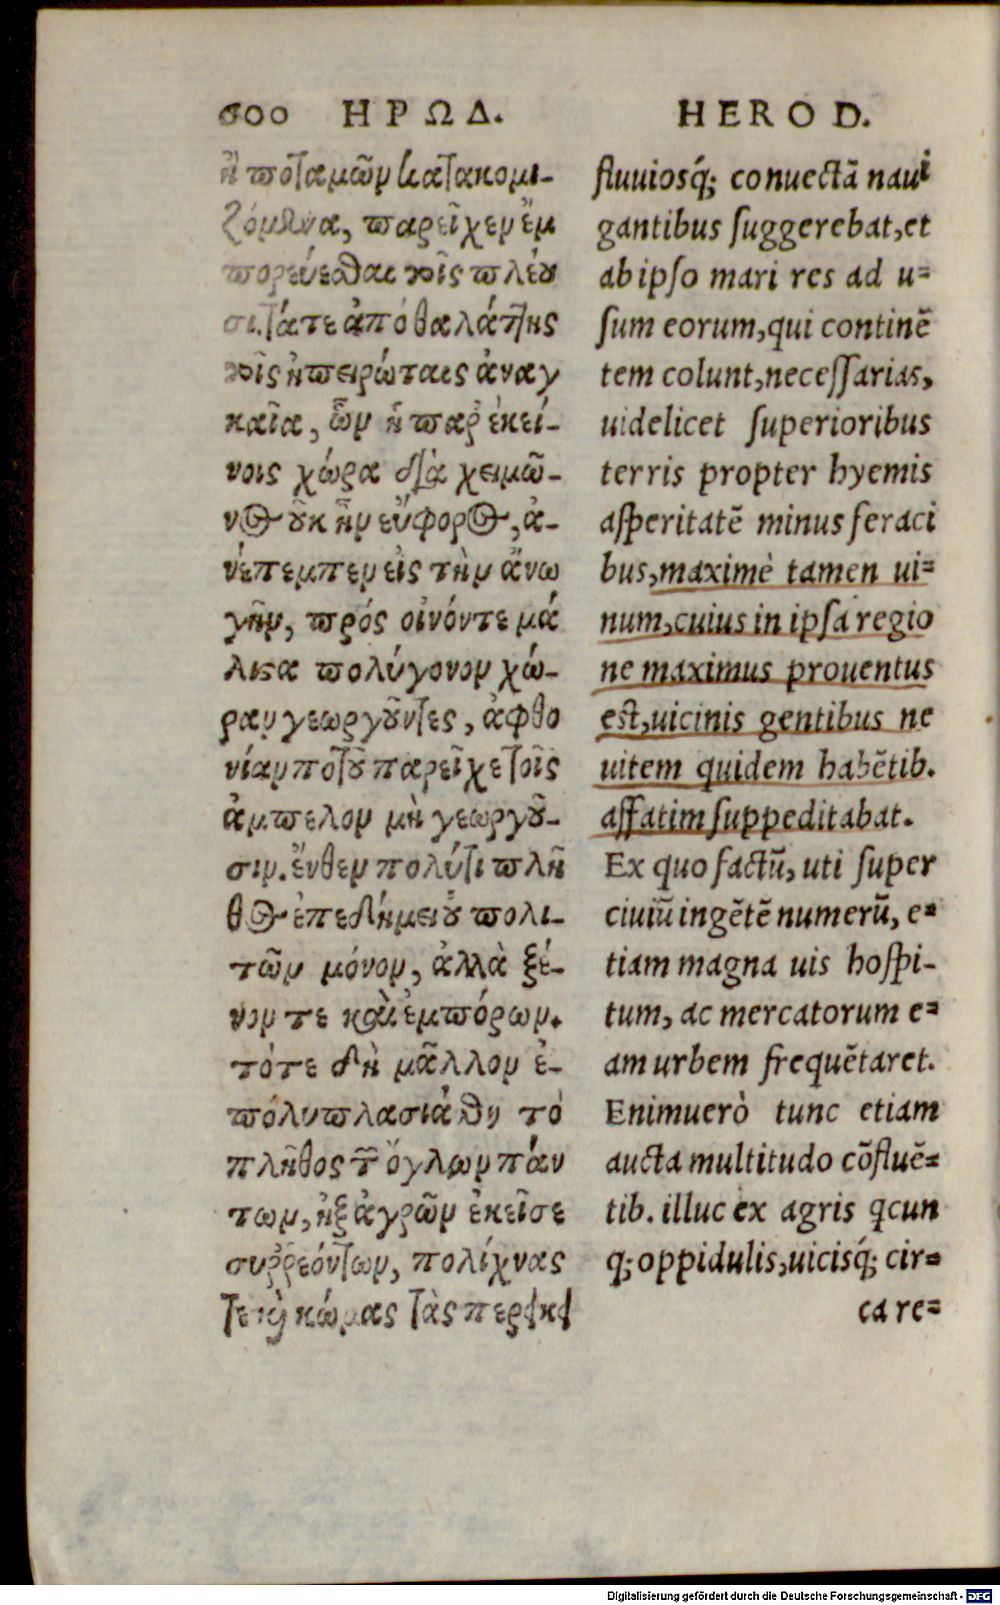 600 ΗΡΩΔ.
ἢ ποταμῶν κατακομι-
ζόμενα, παρεῖχεν ἐμ
πορεύεσθαι τοῖς πλέου
σι. τάτε ἀπὸ θαλάττης
τοῖς ἠπειρώταις ἀναγ
καῖα, ὧν ἡ παρ' ἐκεί-
νοις χώρα διὰ χειμῶ-
νος οὐκ ἦν εὔφορος, ἀ-
νέπεμπεν εἰς τὴν ἄνω
γῆν, πρός οἰνόντε μά
λιστα πολύγονον χώ-
ραν γεωργοῦντες, ἀφθο
νίαν ποτοῦ παρεῖχε τοῖς
ἄμπελον μὴ γεωργοῦ-
σιν. ἔνθεν πολύτι πλῆ
θος ἐπεδήμει οὐ πολι-
τῶν μόνον, ἀλλὰ ξέ-
νον τε καὶ ἐμπόρων.
τότε δὴ μᾶλλον ἐ-
πόλυπλασιάσθη τὸ
πλῆθος τῶν ὄχλων πάν
των, ἠξ ἀγρῶν ἐκεῖσε
συῤῥεόντων, πολίχνας
τε καὶ κώμας τὰς περικει
HEROD.
fluuiosq́; conuectā naui
gantibus suggerebat, et
ab ipso mari res ad u=
sum eorum, qui continē
tem colunt, necessarias,
uidelicet superioribus
terris propter hyemis
asperitatē minus feraci
bus, maximè tamen ui=
num, cuius in ipsa regio
ne maximus prouentus
est, uicinis gentibus ne
uitem quidem habētib.
affatim suppeditabat.
Ex quo factū, uti super
ciuiū ingētē numerū, e=
tiam magna uis hospi-
tum, ac mercatorum e=
am urbem frequētaret.
Enimuerò tunc etiam
aucta multitudo cōfluē=
tib. illuc ex agris qcun
q; oppidulis, uicisq́; cir=
ca re=
Digitalisierung gefördert durch die Deutsche Forschungsgemeinschaft - DFG